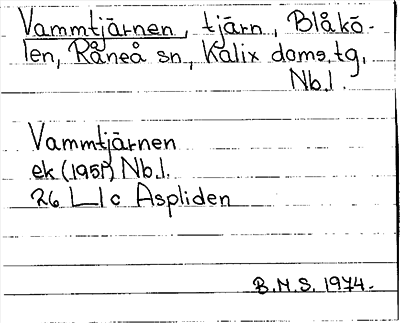 Vammtjärnen, tjärn, Blåkö-
len, Råneå sn, Kalix doms.tg,
Nb.l.
Vammtjärnen
ek (1951) Nb.l.
26 L 1 c Aspliden
B.M.S. 1974.